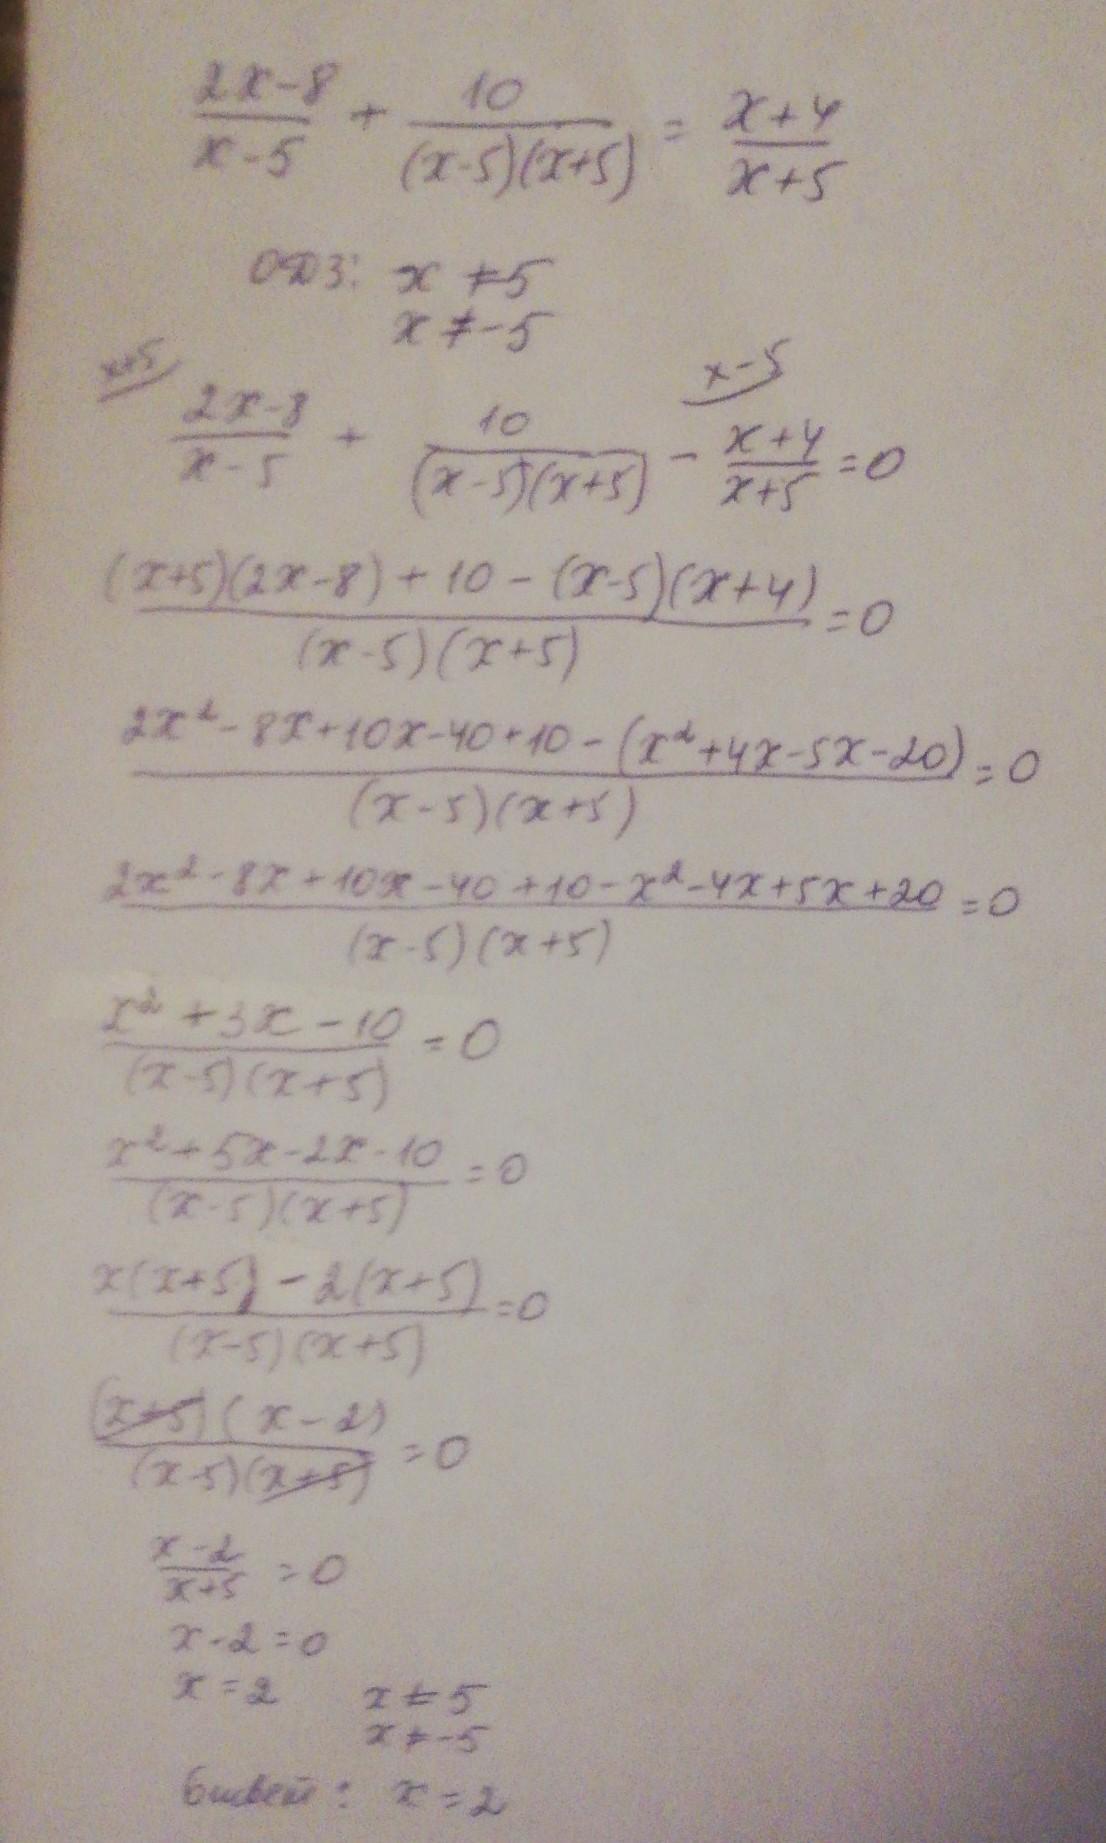 (2x-8)/(x-5) + 10/((x-5)(x+5)) = (x+4)/(x+5)
ОДЗ: x ≠ 5
x ≠ -5
x+5 x-5
(2x-8)/(x-5) + 10/((x-5)(x+5)) - (x+4)/(x+5) = 0
((x+5)(2x-8) + 10 - (x-5)(x+4))/((x-5)(x+5)) = 0
(2x²-8x+10x-40+10-(x²+4x-5x-20))/((x-5)(x+5)) = 0
(2x²-8x+10x-40+10-x²-4x+5x+20)/((x-5)(x+5)) = 0
(x²+3x-10)/((x-5)(x+5)) = 0
(x²+5x-2x-10)/((x-5)(x+5)) = 0
(x(x+5)-2(x+5))/((x-5)(x+5)) = 0
((x+5)(x-2))/((x-5)(x+5)) = 0
(x-2)/(x+5) = 0
x-2=0
x=2 x≠5
x≠-5
Ответ: x=2